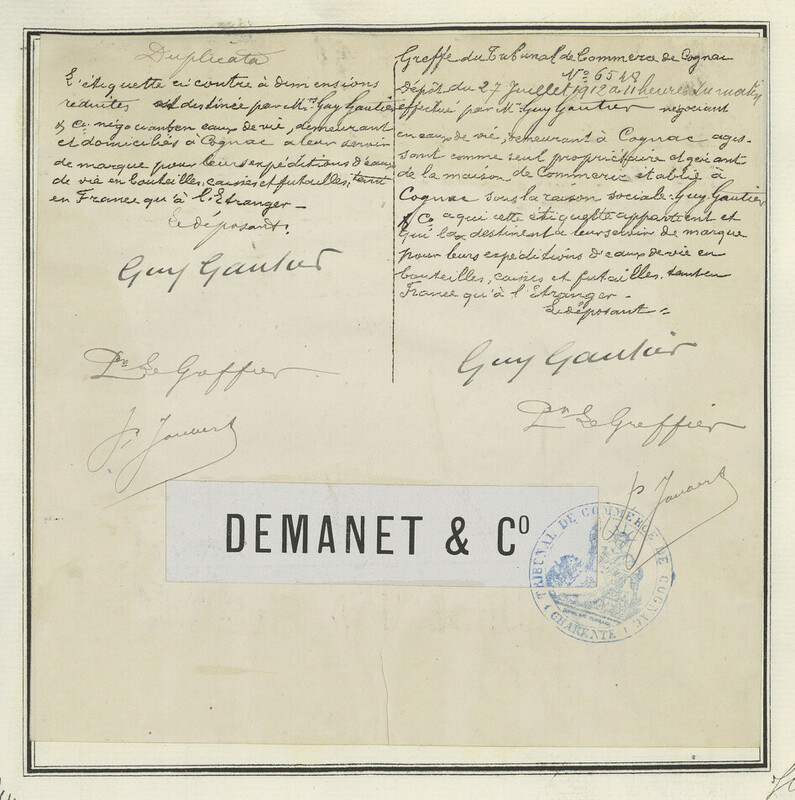 Duplicata
L'étiquette ci contre à dimensions
réduites est destinée par Mr. Guy Gautier
& Co négociants en eaux de vie, demeurant
et domiciliés à Cognac à leur servir
de marque pour leurs expéditions d'eaux
de vie en bouteilles, caisses et futailles, tant
en France qu'à l'Etranger –
Le déposant:
Guy Gautier
Pr Le Greffier
Greffe du Tribunal de Commerce de Cognac
No 6548
Dépôt du 27 Juillet 1912 à 11 heures du matin
effectué par Mr Guy Gautier négociant
en eaux de vie, demeurant à Cognac agis-
sant comme seul propriétaire et gérant
de la maison de Commerce établie à
Cognac sous la raison sociale: Guy Gautier
& Co a qui cette étiquette appartient et
qui la destinent a leur servir de marque
pour leurs expéditions d'eaux de vie en
bouteilles, caisses et futailles. tant en
France qu'à l'Etranger –
Le déposant =
Guy Gautier
Pr Le Greffier
DEMANET & Co
TRIBUNAL DE COMMERCE DE COGNAC
CHARENTE